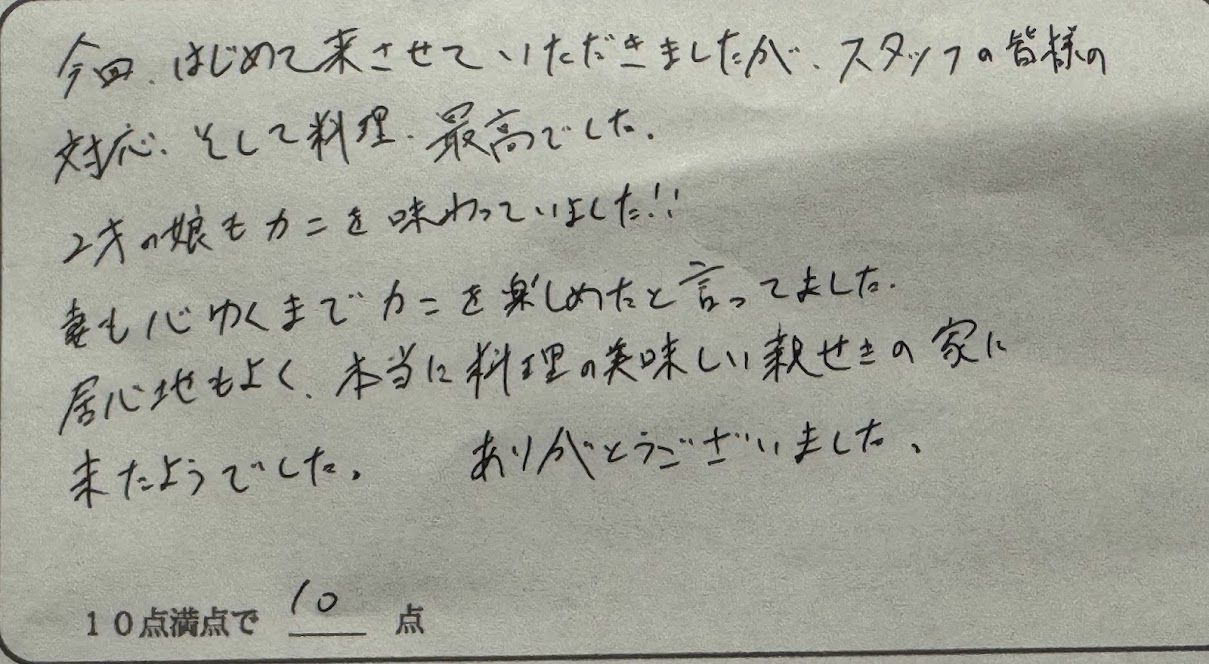 今回、はじめて来させていただきましたが、スタッフの皆様の
対応、そして料理、最高でした。
2才の娘もカニを味わっていました!!
妻も心ゆくまでカニを楽しめたと言ってました。
居心地もよく、本当に料理の美味しい親せきの家に
来たようでした。　ありがとうございました。
10点満点で 10 点